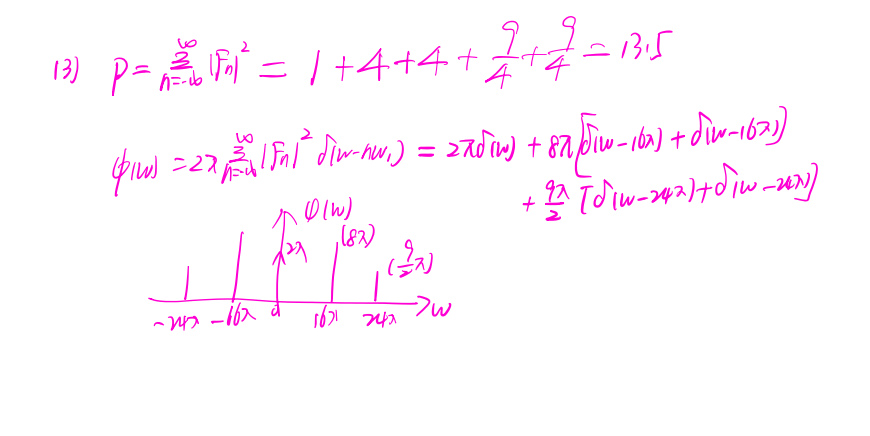 (3) P = ∑_{n=-∞}^{∞} |Fn|² = 1 + 4 + 4 + 9/4 + 9/4 = 13.5
φ(w) = 2π ∑_{n=-∞}^{∞} |Fn|² δ(w-nw₁) = 2πδ(w) + 8π[δ(w-16π) + δ(w-16π)]
+ 9π/2 [δ(w-24π) + δ(w-24π)]
φ(w)
2π (8π) (9/2 π)
-24π -16π 0 16π 24π w